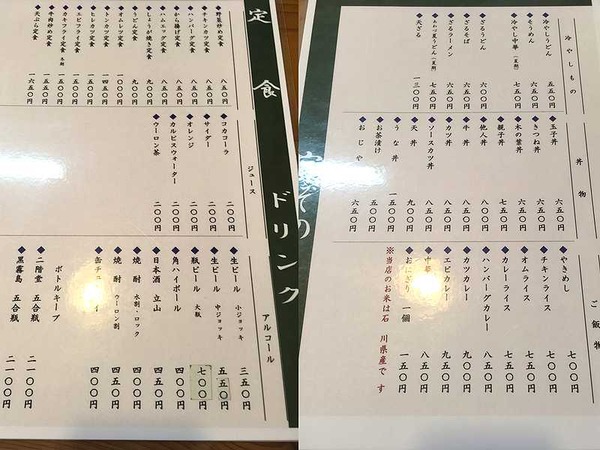 冷やしもの
冷やしうどん 五五〇円
そうめん 六五〇円
冷やし中華(夏期) 七五〇円
ざるうどん 六〇〇円
ざるそば 六五〇円
ざるラーメン 六五〇円
天ざる 一三〇〇円
丼物
玉子丼 六五〇円
きつね丼 六五〇円
木の葉丼 六五〇円
親子丼 七五〇円
他人丼 八五〇円
牛丼 八五〇円
カツ丼 八五〇円
ソースカツ丼 八五〇円
天丼 九〇〇円
うな丼
お茶漬け 五〇〇円
おじや 六五〇円
ご飯物
やきめし 七〇〇円
チキンライス 七〇〇円
オムライス 七五〇円
カレーライス 七五〇円
ハンバーグカレー 八五〇円
カツカレー 九五〇円
エビカレー 九五〇円
八五〇円
おにぎり 一個 一五〇円
※当店のお米は石川県産です
定食
野菜炒め定食 八五〇円
チキンカツ定食 八五〇円
ハンバーグ定食 八五〇円
から揚げ定食 八五〇円
ハムエッグ定食 八五〇円
しょうが焼き定食 九五〇円
うどん定食 九〇〇円
オムレツ定食
トンカツ定食
ヒレカツ定食
エビフライ定食
カキフライ定食
牛肉炒め定食
天ぷら定食 一六五〇円
ドリンク
ジュース
コカコーラ 二〇〇円
サイダー 二〇〇円
オレンジ 二〇〇円
カルピスウォーター 二〇〇円
ウーロン茶 二〇〇円
アルコール
生ビール 小ジョッキ 三五〇円
生ビール 中ジョッキ 五五〇円
瓶ビール 大瓶 七〇〇円
角ハイボール 四五〇円
日本酒 立山 四五〇円
焼酎 水割・ロック 四〇〇円
焼酎 ウーロン割 四五〇円
缶チューハイ 四〇〇円
ボトルキープ
二階堂 五合瓶 二一〇〇円
黒霧島 五合瓶 二一〇〇円